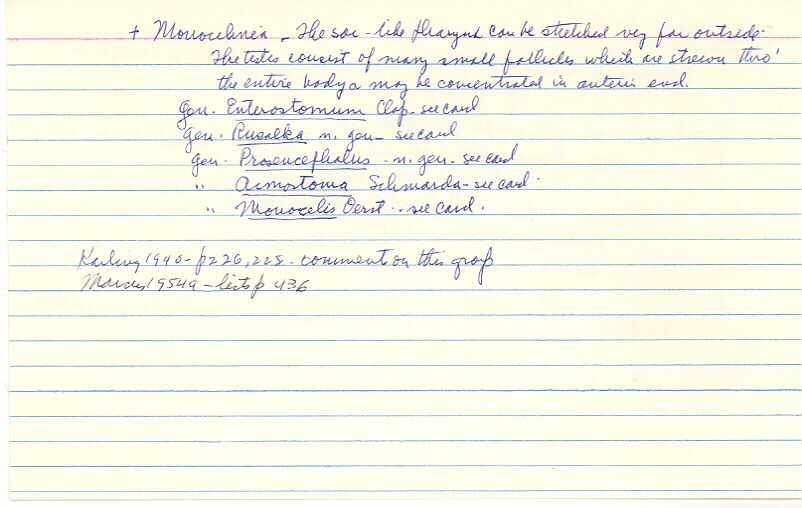 + Monocelinea - The sac-like pharynx can be stretched very far outside.
The testes consist of many small follicles which are strewn thro'
the entire body or may be concentrated in anterior end.
gen. Enterostomum Clap. see card
gen. Rusalka n. gen - see card
gen. Prosencephalus - n. gen. see card
" Acmostoma Schmarda - see card.
" Monocelis Oerst.. see card.
Karling 1940 - p 226, 228 - comment on this group
Marcus 1954a - lists p 436